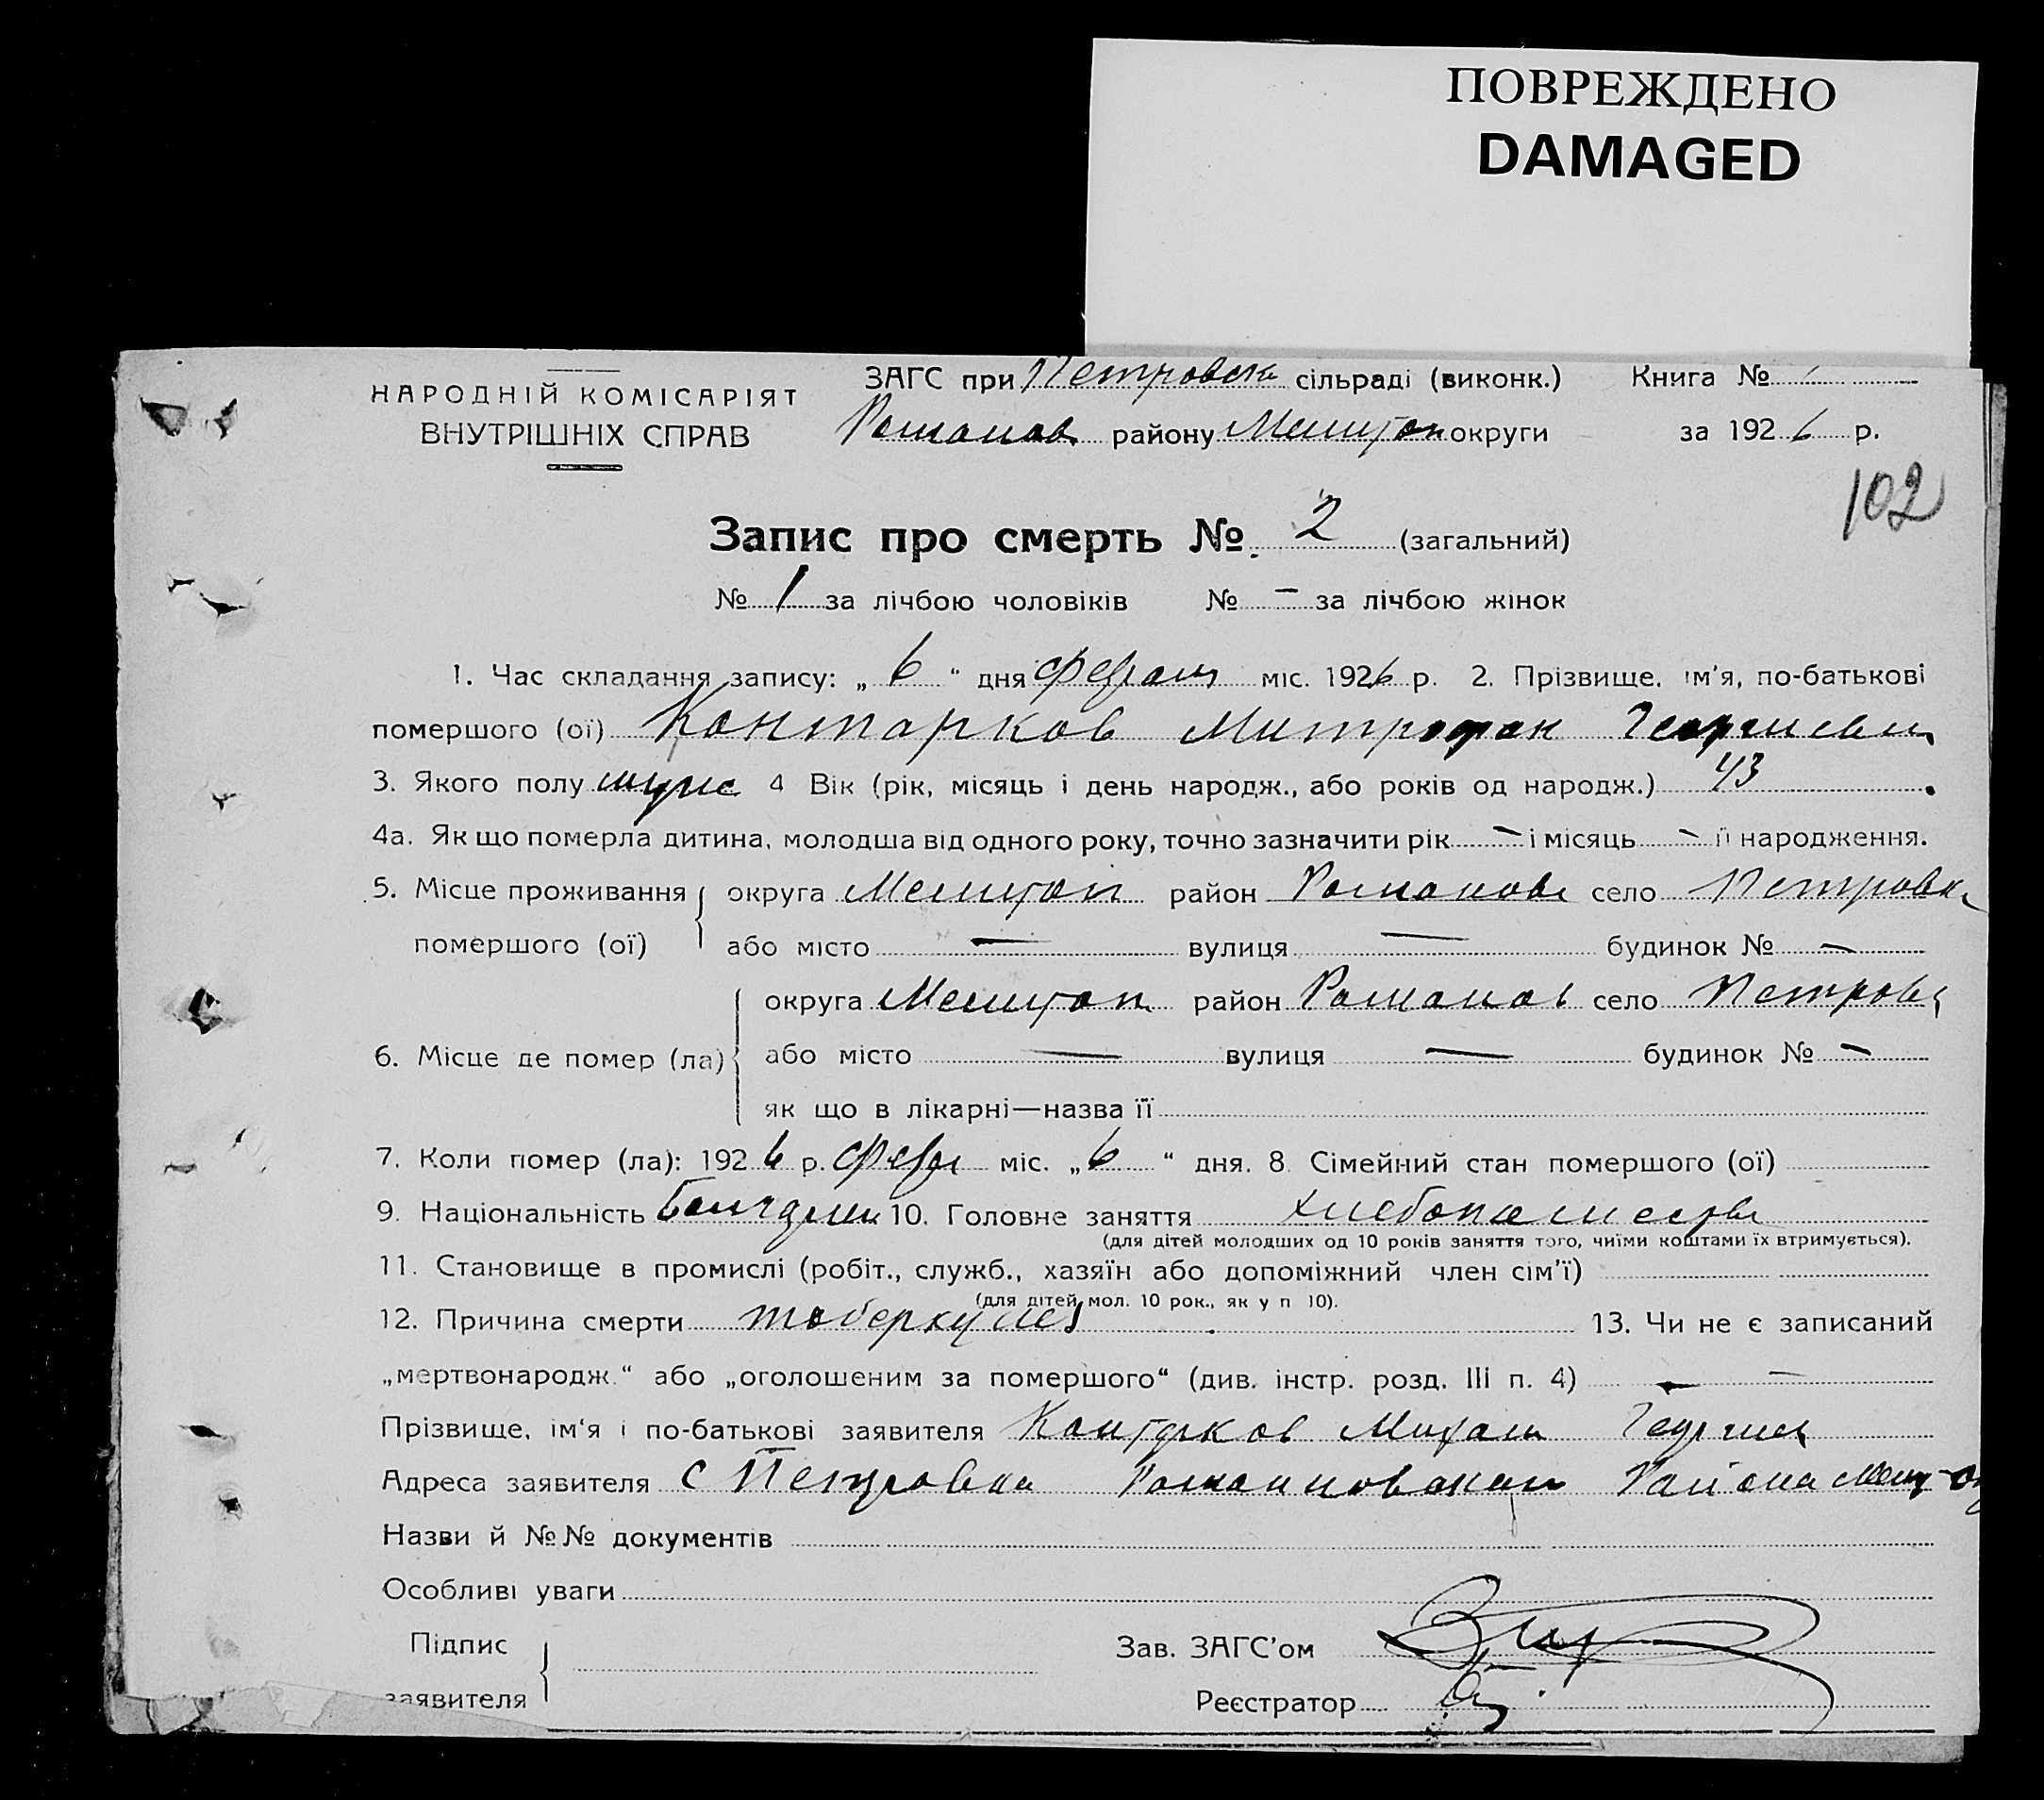 ПОВРЕЖДЕНО
DAMAGED
НАРОДНІЙ КОМІСАРІЯТ
ВНУТРІШНІХ СПРАВ
ЗАГС при Петровск сільраді (виконк.) Книга №
Романов району Мелитоп округи за 1926 р.
102
Запис про смерть № 2 (загальний)
№ 1 за лічбою чоловіків № – за лічбою жінок
1. Час складання запису: „ 6 “ дня міс. 1926 р. 2. Прізвище, ім'я, по-батькові
помершого (ої) Контарков Митрофан Георгиеви
3. Якого полу муж 4 Вік (рік, місяць і день народж., або років од народж.) 43
4а. Як що померла дитина, молодша від одного року, точно зазначити рік – і місяць – її народження.
5. Місце проживання помершого (ої) округа Мелитоп район Романов село Петровка
або місто — вулиця — будинок № –
6. Місце де помер (ла) округа Мелитоп район Романов село Петровк
або місто — вулиця — будинок № –
як що в лікарні—назва її
7. Коли помер (ла): 1926 р. Февр міс. „6 “ дня. 8. Сімейний стан помершого (ої)
9. Національність 10. Головне заняття хлебопашество
(для дітей молодших од 10 років заняття того, чиїми коштами їх втримується).
11. Становище в промислі (робіт., служб., хазяїн або допоміжний член сім'ї)
(для дітей мол. 10 рок., як у п 10).
12. Причина смерти тоберкулез 13. Чи не є записаний
„мертвонародж.“ або „оголошеним за помершого“ (див. інстр. розд. III п. 4) —
Прізвище, ім'я і по-батькові заявителя Контарков Михаил Георгиев
Адреса заявителя с Петровка Романновскаго Района
Назви й №№ документів
Особливі уваги
Підпис заявителя
Зав. ЗАГС'ом
Реєстратор